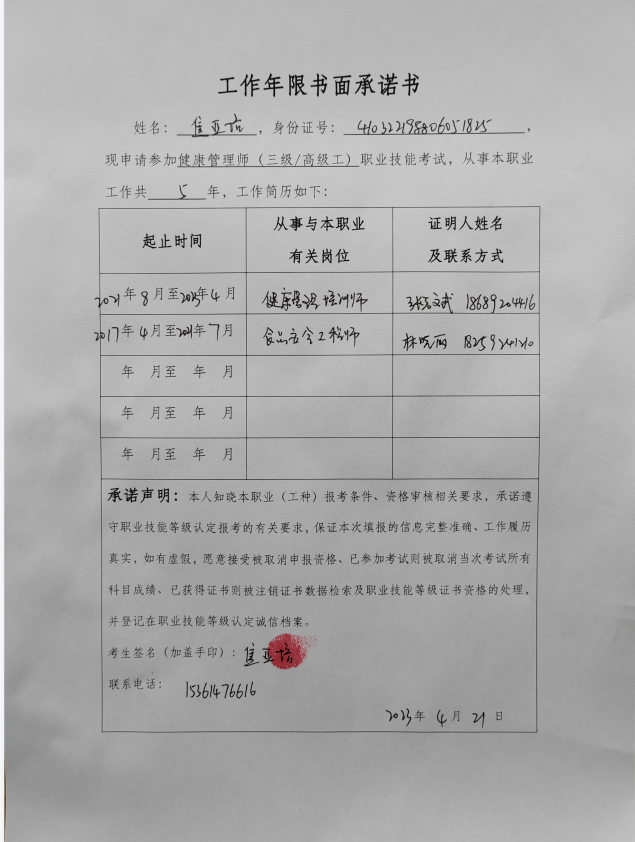 工作年限书面承诺书
姓名：焦亚培，身份证号：410322198806051825，
现申请参加健康管理师（三级/高级工）职业技能考试，从事本职业
工作共5年，工作简历如下：
起止时间 从事与本职业有关岗位 证明人姓名及联系方式
2021年8月至2023年4月 健康管理培训师 张文武 18689204416
2017年4月至2021年7月 食品安全工程师 林晓丽 18259241210
年 月至 年 月
年 月至 年 月
年 月至 年 月
承诺声明：本人知晓本职业（工种）报考条件、资格审核相关要求，承诺遵
守职业技能等级认定报考的有关要求，保证本次填报的信息完整准确、工作履历
真实，如有虚假，愿意接受被取消申报资格、已参加考试则被取消当次考试所有
科目成绩、已获得证书则被注销证书数据检索及职业技能等级证书资格的处理，
并登记在职业技能等级认定诚信档案。
考生签名（加盖手印）：焦亚培
联系电话：15361476616
2023年4月21日